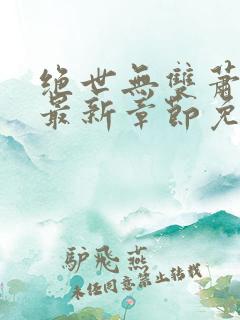 絕世無雙蕭
最新章節免
驴飛燕
未经同意禁止转载